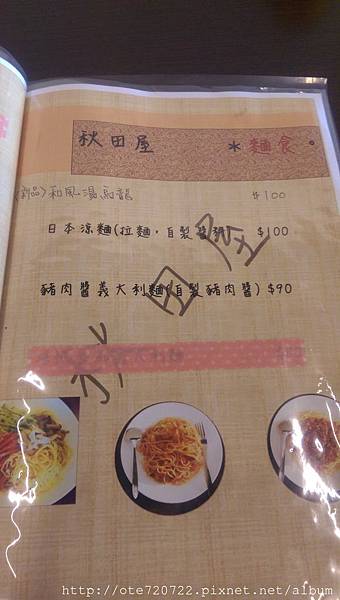 秋田屋 *麵食。
(新品)和風湯烏龍 $100
日本涼麵(拉麵,自製醬汁) $100
豬肉醬義大利麵(自製豬肉醬) $90
秋田屋
http://ote720722.pixnet.net/album